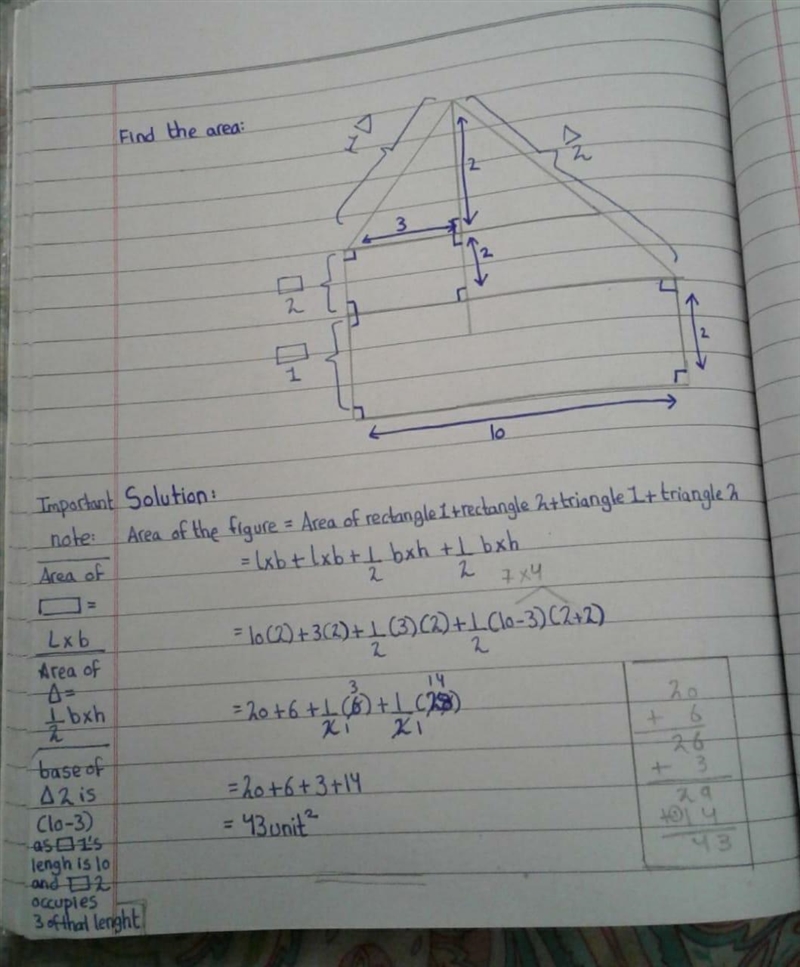 Find the area:
1 △
△ 2
2
3
2
▭ 2
▭ 1
2
10
Important note:
Area of ▭ =
Lxb
Area of △=
1/2 bxh
base of
△2 is
(10-3)
as ▭1's
lengh is 10
and ▭2
occupies
3 of that lenght
Solution:
Area of the figure = Area of rectangle 1+rectangle 2+triangle 1+triangle 2
= lxb + lxb + 1/2 bxh + 1/2 bxh
7 x 4
= 10(2) + 3(2) + 1/2 (3)(2) + 1/2 (10-3)(2+2)
3 14
= 20 + 6 + 1/2 (6) + 1/2 (28)
1 1
= 20 + 6 + 3 + 14
= 43 unit²
20
+ 6
26
+ 3
29
+ 14
43